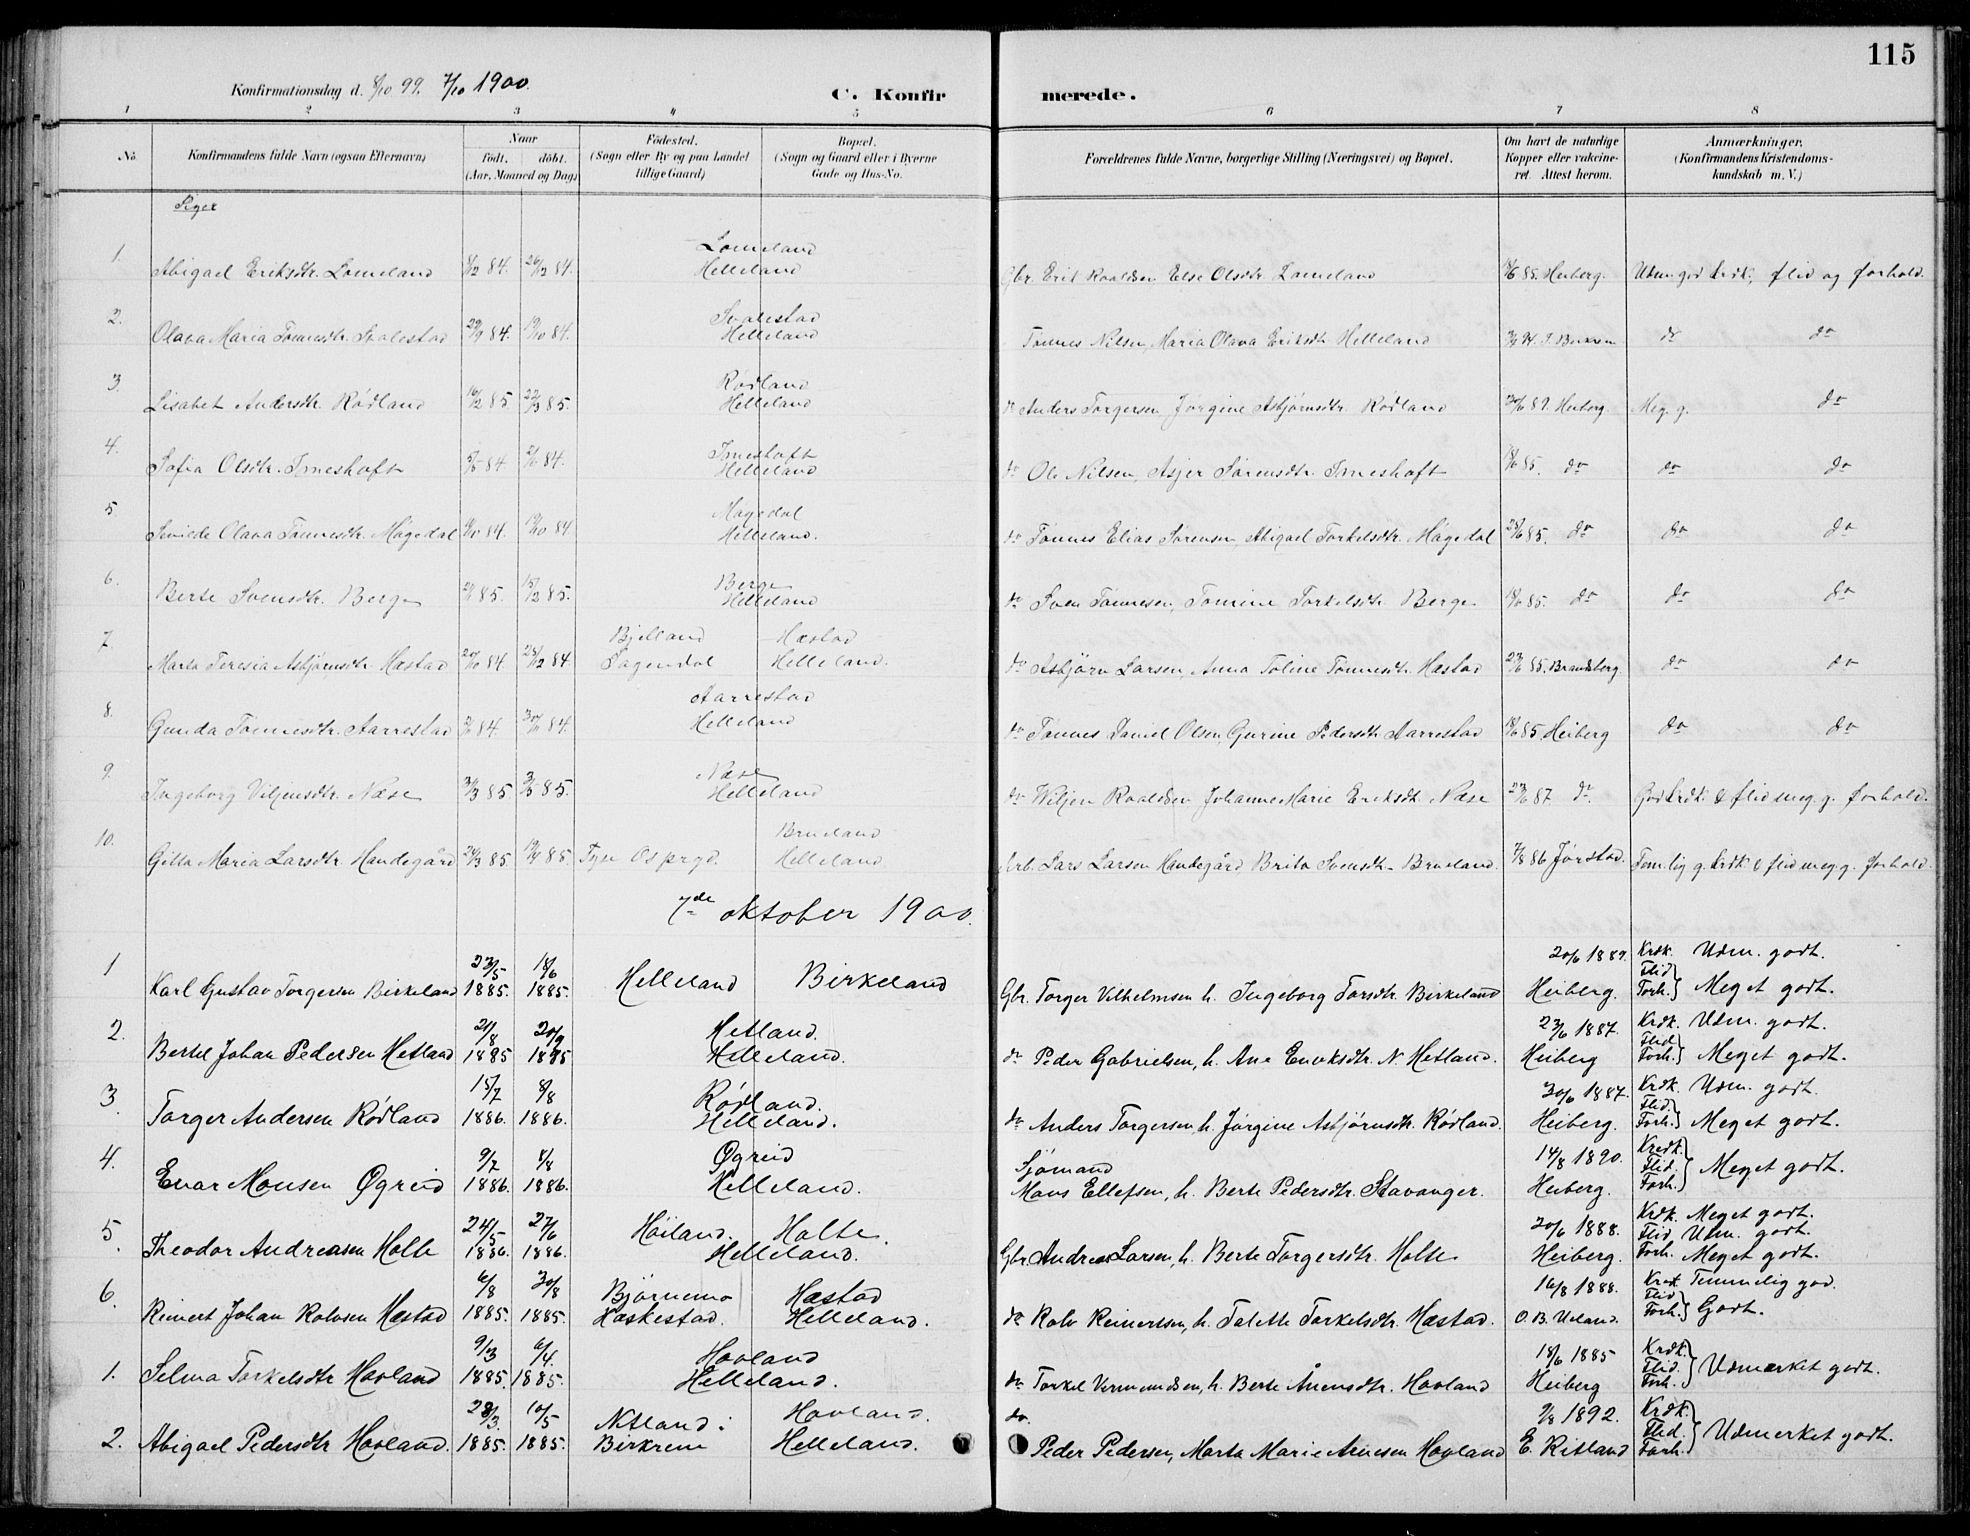 115
Konfirmationsdag d. 8/10 99. 7/10 1900.
C. Konfirmerede.
1 2 3 4 5 6 7 8
No.
Konfirmandens fulde Navn (ogsaa Efternavn)
Naar
født. døbt.
(Aar, Maaned og Dag)
Fødested.
(Sogn eller By og paa Landet
tillige Gaard)
Bopæl.
(Sogn og Gaard eller i Byerne
Gade og Hus-No.
Forældrenes fulde Navne, borgerlige Stilling (Næringsvei) og Bopæl.
Om havt de naturlige
Kopper eller vakcine-
ret. Attest herom.
Anmærkninger.
(Konfirmandens Kristendoms-
kundskab m. V.)
Piger
1. Abigael Eriksdtr. Lomeland 84. 84. Lomeland Helleland Gbr. Erik Roaldsen Else Olsdtr. Lomeland 85. Heiberg. Udm. god krdk., flid og forhold.
2. Olava Maria Tønnesdtr. Svalestad 29/9 84. 19/10 84. Svalestad Helleland Tønnes Nilsen, Maria Olava Eriksdtr Helleland do do
3. Lisabet Andersdtr. Rødland 16/2 85 22/3 85. Rødland Helleland do Anders Torgersen Jørgine Asbjørnsdtr. Rødland 30/6 87. Heiberg. Meg. g. do
4. Sofia Olsdtr. Imeshaft 84 84. Imeshaft Helleland do Ole Nilsen, Asjer Sørensdtr. Imeshaft 18/6 85. do do do
5. Olava Tønnesdtr. Mågedal 84. 19/10 84 Magedal Helleland. do Tønnes Elias Sørensen, Abigael Torkelsdtr. Mågedal 85. do do do
6. Berte Svensdtr. Berge 85. 15/2 85. Berge Helleland do Sven Tønnesen, Tomine Torkelsdtr. Berge 18/6 85. do do do
7 Marta Teresia Asbjørnsdtr. Hæstad 20/10 84 28/12 84 Bjelland Sogendal Hæstad Helleland. do Asbjørn Larsen, Anna Toline Tønnesdtr. Hæstad 85. Brandsberg. do do
8. Gunda Tønnesdtr. Aarrestad 84. 30/11 84. Aarrestad Helleland do Tønnes Daniel Olsen, Gurine Pedersdtr. Aarrestad 18/6 85. Heiberg do do
9. Ingeborg Viljensdtr. Næse 85 85. Næse Helleland do Wiljen Roaldsen Johanne Marie Eriksdtr. Næse 23/6 87 do. God krdk & flid meg. g. forhold.
10. Gitta Maria Larsdtr. Handegård 24/3 85 19/4 85 Ospryd. Brueland Helleland Arb. Lars Larsen Handegård Brita Svensdtr. Brueland. 7/8 86 Jørstad. Temlig g. krdk & flid meg. g. forhold.
7de oktober 1900.
1 Karl Gustav Torgersen Birkeland 23/5 1885. 18/6 1885. Helleland Birkeland Gbr. Torger Vilhelmsen h. Ingeborg Torsdtr. Birkeland 20/6 1889. Heiberg. Krdk. Udm. godt. Flid Forh.} Meget godt.
2. Bertel Johan Pedersen Hetland 21/8 1885 20/9 1885 Hetland. Helleland. do Peder Gabrielsen, h. Ane Enoksdtr. N. Hetland. 23/6 1887. Heiberg Krdk. Udm. godt. Flid Forh.} Meget godt.
3. Torger Andersen Rødland 15/7 1886. 8/8 1886. Rødland. Helleland. do Anders Torgersen, h. Jørgine Asbjørnsdtr. Rødland. 30/6 1887. Heiberg. Krdk. Udm. godt. Flid. Forh.} Meget godt.
4. Enar Monsen Øgreid 9/7 1886. 8/8 1886. Øgreid Helleland. Sjømand Mons Ellefsen, h. Berte Pedersdtr. Stavanger. 14/8 1890. Heiberg. Krdk. Flid. Forh.} Meget godt.
5. Theodor Andreasen Holte 24/5 1886. 27/6 1886. Høiland. Holte. Helleland. Gbr. Andreas Larsen, h. Berte Torgersdtr. Holte 20/6 1888. Heiberg. Krdk. Meget godt. Flid Udm. godt. Forh. Meget godt.
6. Reinert Johan Rolvsen Hæstad 6/8 1885. 30/8 1885. Bjørnemo Heskestad. Hæstad Helleland. do Rolv Reinertsen, h. Talette Torkelsdtr. Hæstad. 16/8 1888. O. B. Ueland. Krdk Temmelig god. Flid Forh.} Godt.
1. Selma Torkelsdtr Hovland 9/3 1885. 6/4. 1885. Hovland Helleland. do Torkel Vermundsen, h. Berte Ånensdtr. Hovland 18/6 1885 Heiberg Krdk. Flid. Forh.} Udmærket godt.
2. Abigael Pedersdtr Hovland. 28/3. 1885. 10/5 1885. Netland i Birkrem Hovland. Helleland. do. Peder Pedersen, Marta Marie Arnesen Hovland 9/8 1892. E. Ritland Krdk. Flid. Forh.} Udmerket godt.